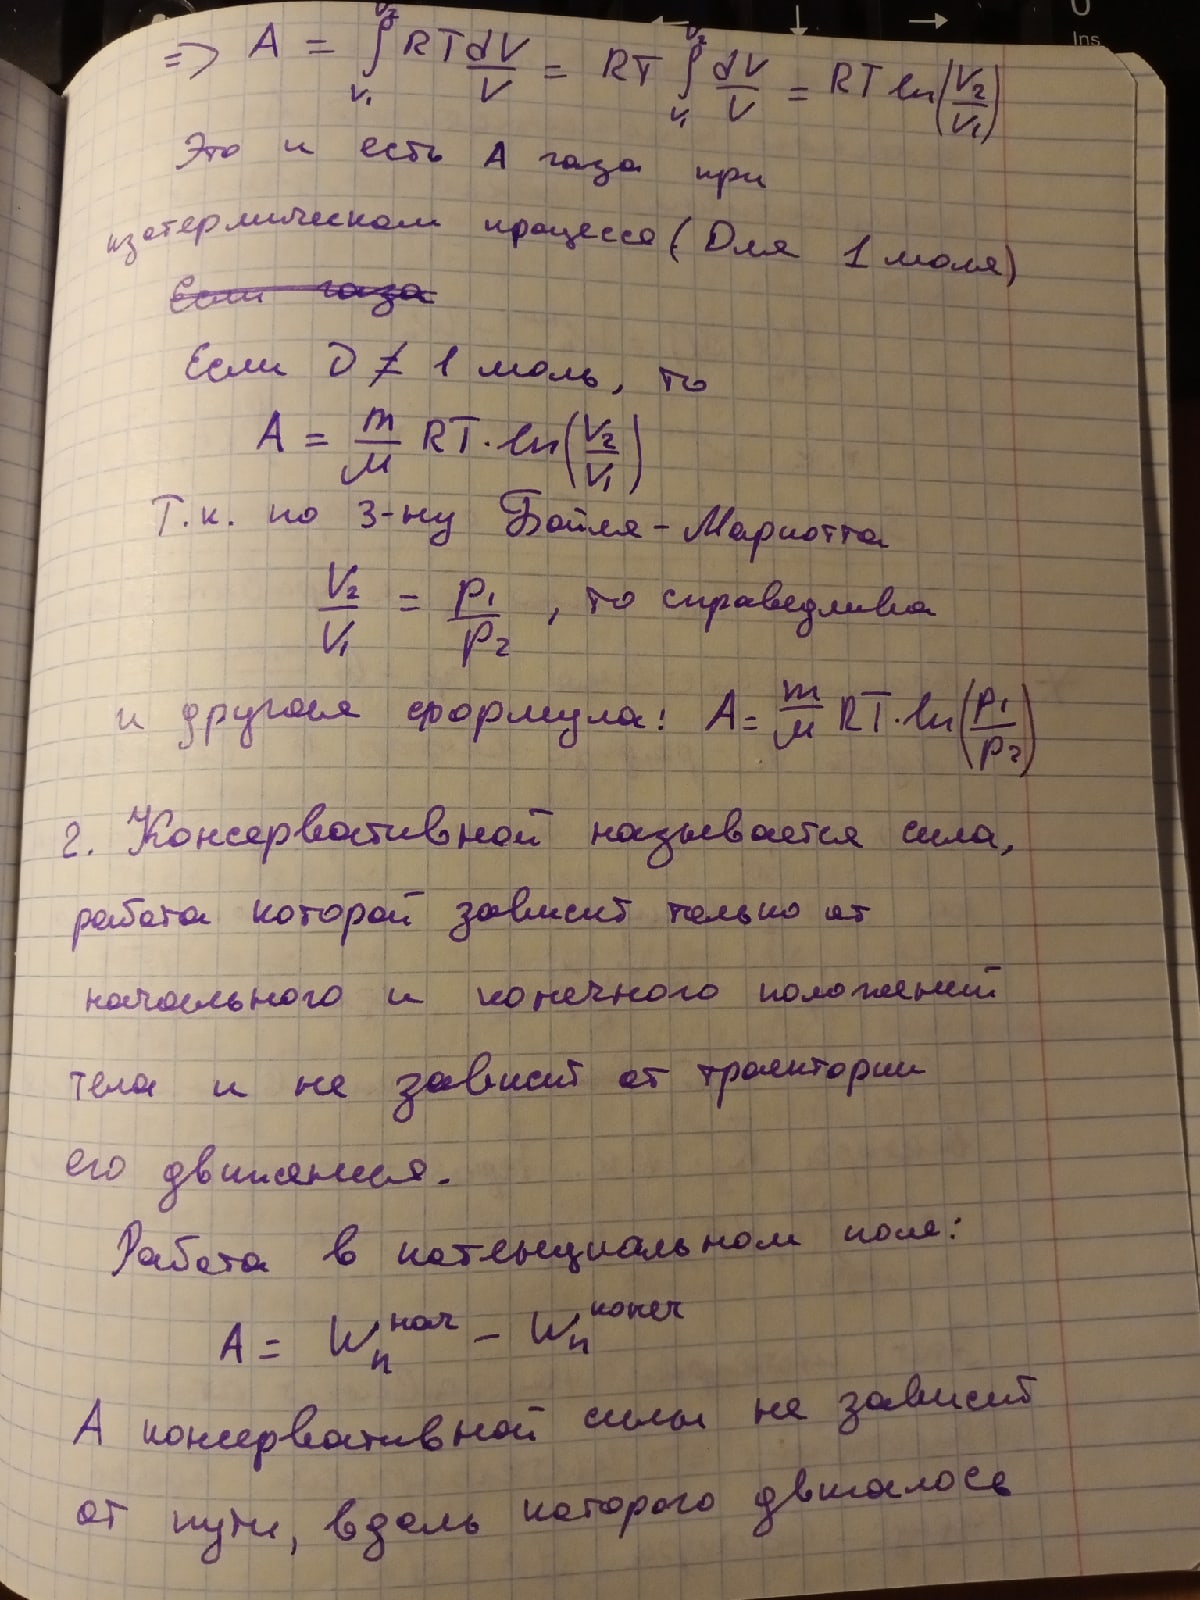 => A = ∫_{V₁}^{V₂} RT dV/V = RT ∫_{V₁}^{V₂} dV/V = RT ln(V₂/V₁)
Это и есть A газа при
изотермическом процессе (Для 1 моля)
Если газа
Если ν ≠ 1 моль, то
A = m/μ RT · ln(V₂/V₁)
Т.к. по з-ну Бойля-Мариотта
V₂/V₁ = p₁/p₂, то справедлива
и другая формула: A = m/μ RT · ln(p₁/p₂)
2. Консервативной называется сила,
работа которой зависит только от
начального и конечного положений
тела и не зависит от траектории
его движения.
Работа в потенциальном поле:
A = Wₙ^{нач} - Wₙ^{конеч}
A консервативной силы не зависит
от пути, вдоль которого двигалось
0
Ins